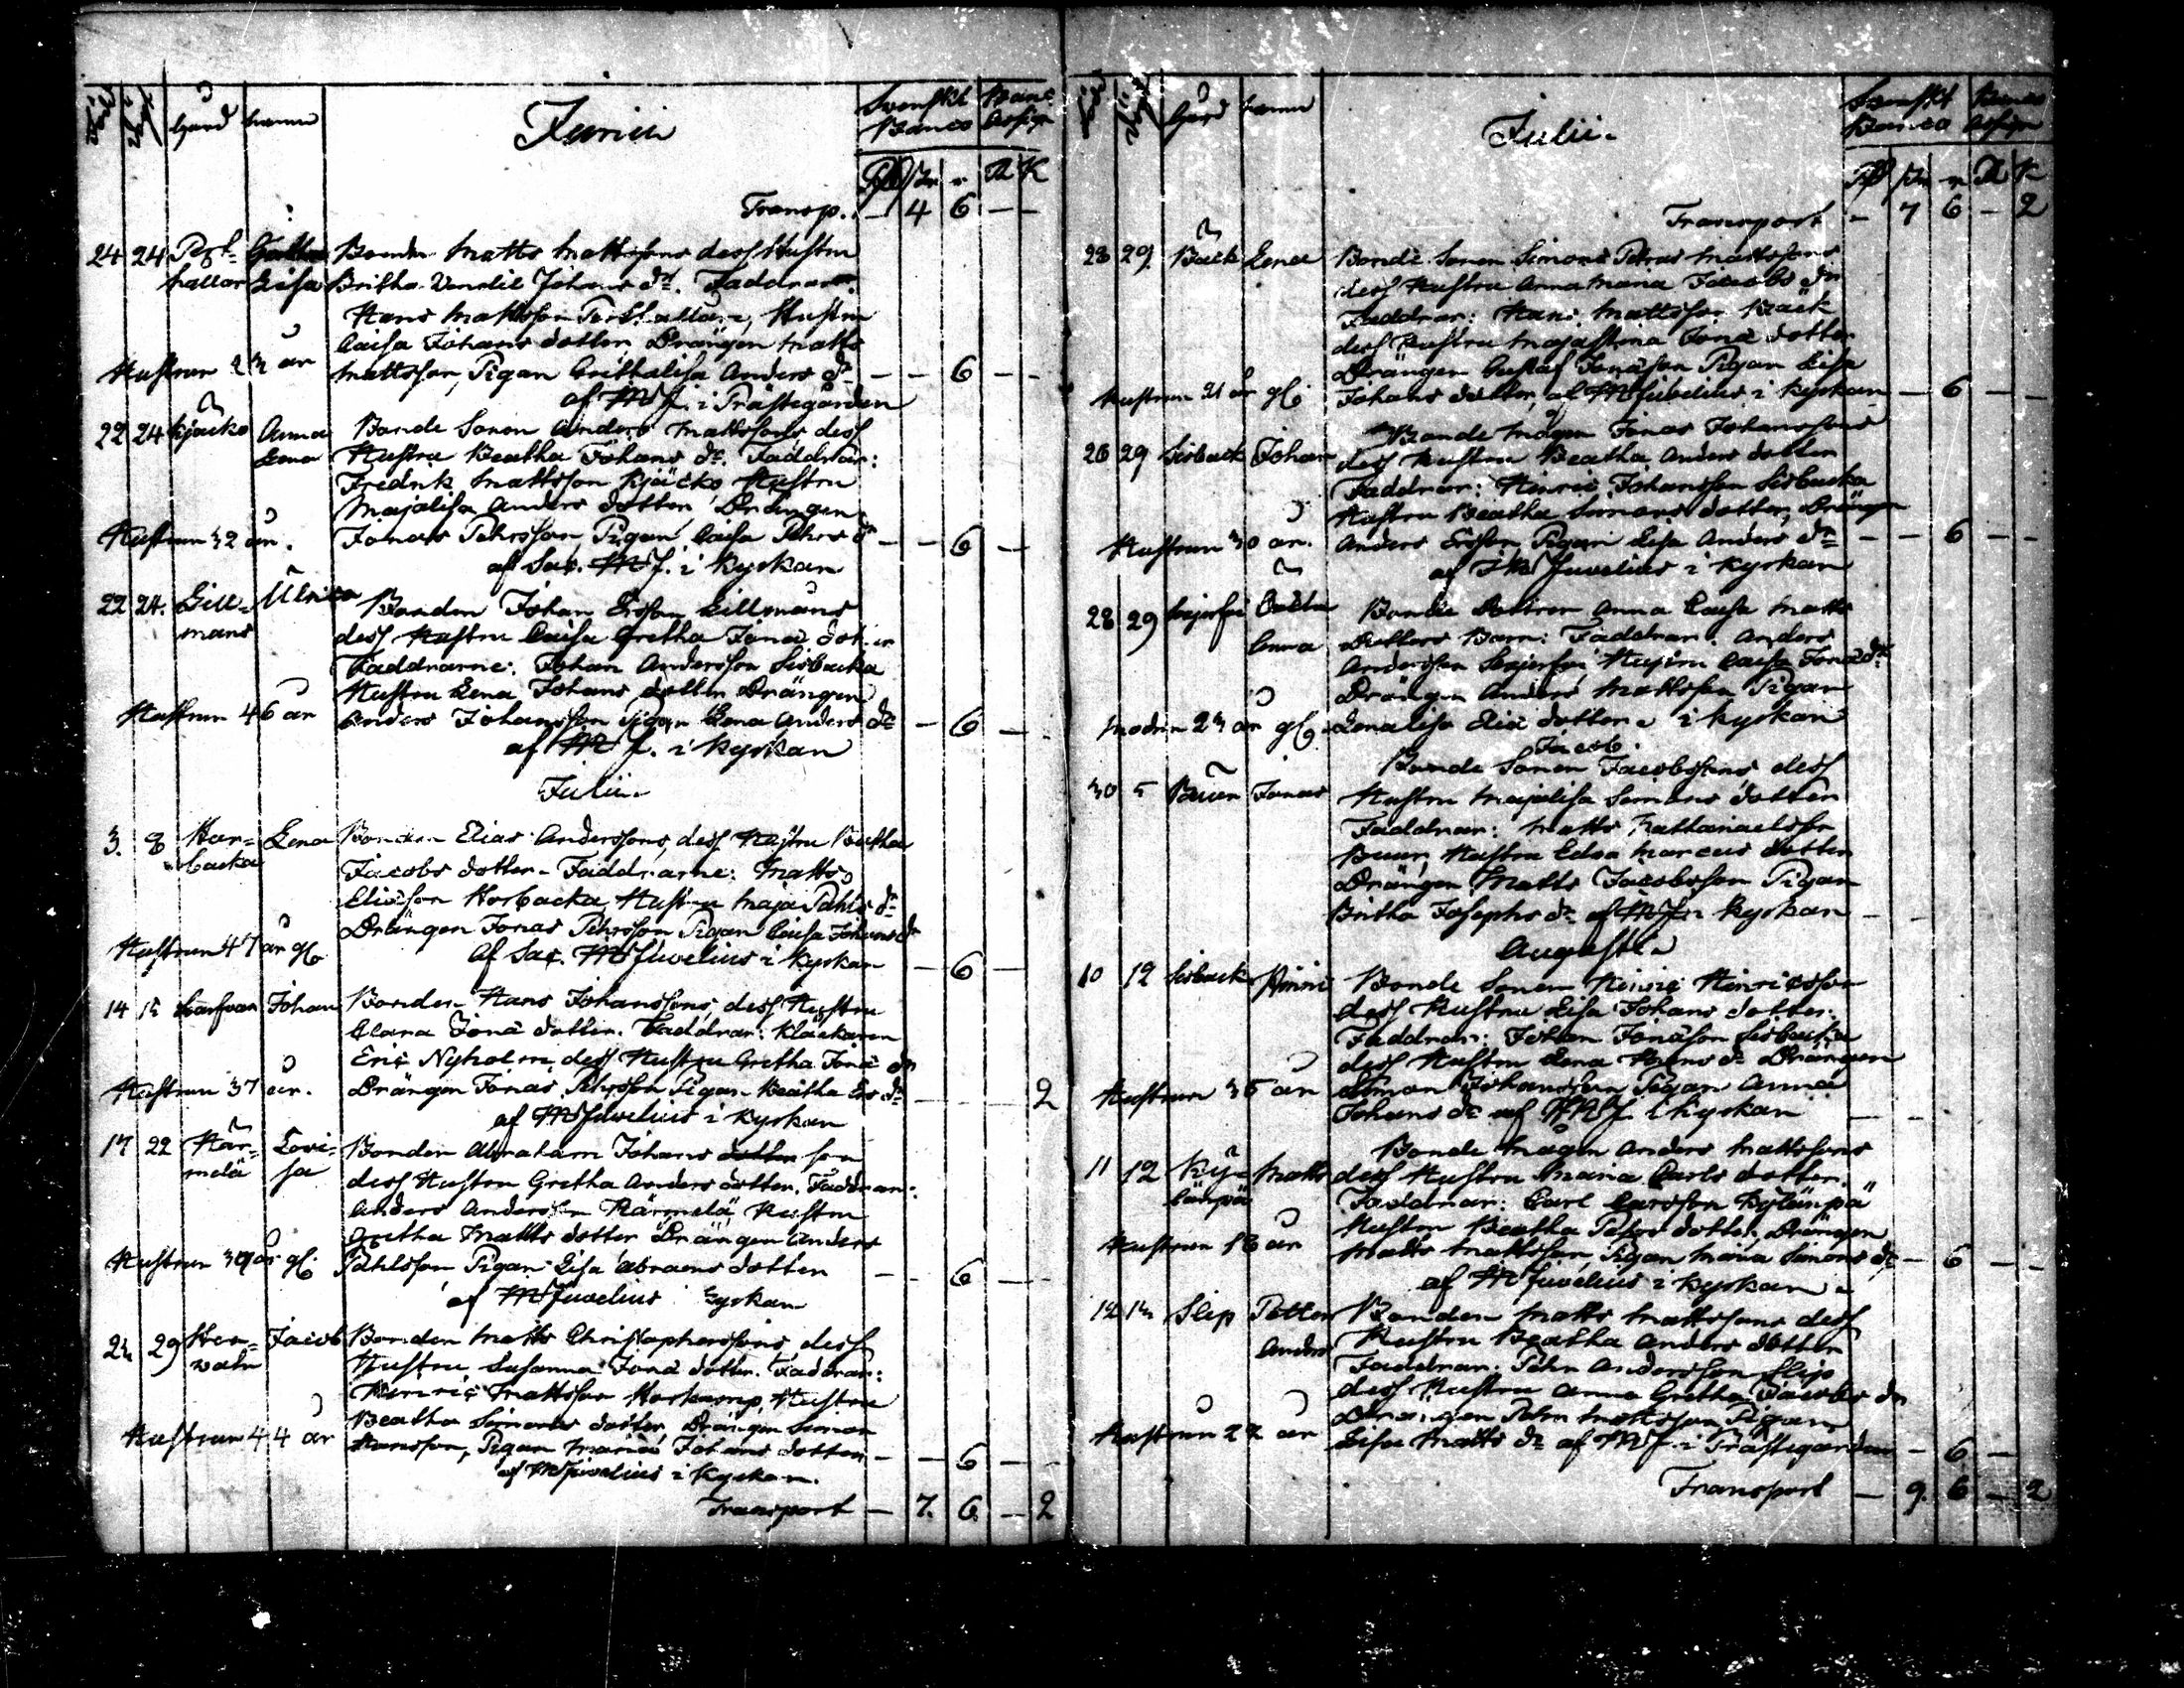 Gård namn Junii Svenskt Banco Banc Assign
Transp. – 4 6 – –
24 24 Pert- Gretha Bonden Matts Mattssons dess Hustru
kallar Lisa Britha Johans dr. Faddrar:
Hans Mattsson Pertkallar, Hustru
Caisa Johans dotter, Drängen Matts
Hustrun år Mattsson, Pigan Grethalisa Anders dr – – 6 – –
af i Prästegården
22 24 Kjäcko Anna Bonde Sonen Anders Mattssons dess
Lena Hustru Beatha Johans dr. Faddrar:
Fredrik Mattsson Kjäcko Hustru
Majalisa Anders dotter, Drängen
Hustrun 32 år. Jonas Pehrsson Pigan Caisa Pehrs dr – – 6 –
af Sac. i Kyrkan
22 24. Lill- Ulrica Bonden Johan Ersson Lillmans
mans dess Hustru Caisa Gretha Jona dotter
Faddrarne: Johan Andersson Sisbacka
Hustru Lena Johans dotter Drängen
Hustrun 46 år Anders Johansson Pigan Lena Anders dr – 6 –
af i Kyrkan
Julii
3. 8 Hor- Lena Bonden Elias Anderssons, dess Hustru Beatha
backa Jacobs dotter – Faddrarne: Matts
Eliasson Horbacka, Hustru Maja Pahls dr
Drängen Jonas Pehrsson Pigan Caisa Johans dr
Hustrun 47 år gl. Af Sac. Juvelius i Kyrkan – 6 –
14 15 Johan Bonden Hans Johanssons, dess Hustru
Clara Jona dotter. Faddrar: Klåckaren
Eric Nyholm, dess Hustru Gretha Jona dr
Hustrun 37 år. Drängen Jonas Pehrsson Pigan Beatha Ers dr 2
af Juvelius i Kyrkan
17 22 Här- Lovi- Bonden Abraham Johans dotter son
melä sa dess Hustru Gretha Anders dotter. Faddrar:
Anders Andersson Härmelä, Hustru
Gretha Matts dotter Drängen Anders
Hustrun 39 år gl. Pahlsson Pigan Lisa Abrams dotter – – 6 – –
af Juvelius Kyrkan
29 Jacob Bonden Matts Christophersons, dess
Hustru Susanna Jona dotter. Faddrar:
Henric Mattsson Hustru
Beatha Simons dotter, Drängen Simon
Hustrun 44 år Hansson, Pigan Maria Johans dotter – – 6 – –
af Juvelius i Kyrkan.
Transport – 7. 6. – 2
Gård namn Julii Svenskt Banco Banco Assign
Transport – 7 6 – 2
23 29. Back Lena Bonde Sonen Simons Mattssons
dess Hustru Anna Maria Jacobs dr
Faddrar: Hans Mattsson Back
dess Hustru Majastina Jona dotter
Drängen Gustaf Jonasson Pigan Lisa
Hustrun 21 år gl. Johans dotter, af Juvelius i Kyrkan – 6 –
26 29 Sisback Johan Bonde Mågen Jonas Johanssons
dess Hustru Beatha Anders dotter
Faddrar: Hinric Johansson Sisbacka
Hustru Beatha Simons dotter, Drängen
Hustrun 30 år. Anders Ersson Pigan Lisa Anders dr – – 6 – –
af Juvelius i Kyrkan
28 29 Bonde Dottren Anna Caisa Matts
Anna Dotters Barn: Faddrar: Anders
Andersson Hustru Caisa Jona dr
Drängen Anders Mattsson Pigan
Modren 23 år gl. Lenalisa Elia dotter i Kyrkan
Jacob
30 5 Buur Jonas Bonde Sonen Jacobssons dess
Hustru Majalisa Simons dotter
Faddrar: Matts Nathanaelsson
Buur, Hustru Edva Marcus dotter
Drängen Matts Jacobsson Pigan
Britha Josephs dr af i Kyrkan – –
Augusti
10 12 Sisback Hinric Bonde Sonen Hinric Hinricsson
dess Hustru Lisa Johans dotter:
Faddrar: Johan Jonasson Sisbacka
dess Hustru Lena Hans dr Drängen
Hustrun 35 år Simon Johansson Pigan Anna
Johans dr af i Kyrkan – –
11 12 Matts Bonde Mågen Anders Mattssons
dess Hustru Maria Carls dotter.
Faddrar: Carl Carlsson Kylänpä
Hustru Beatha Pehrs dotter Drängen
Hustrun 18 år Matts Mattsson, Pigan Maria Simons dr – 6 – –
af Juvelius i Kyrkan
12 13 Slip Petter Bonden Matts Mattssons dess
Anders Hustru Beatha Anders dotter
Faddrar: Pehr Andersson Slip
dess Hustru Anna Gretha Jacobs dr
Drängen Pehr Mattsson Pigan
Hustrun 27 år Lisa Matts dr af i Prästegården – 6 –
Transport – 9. 6 – 2